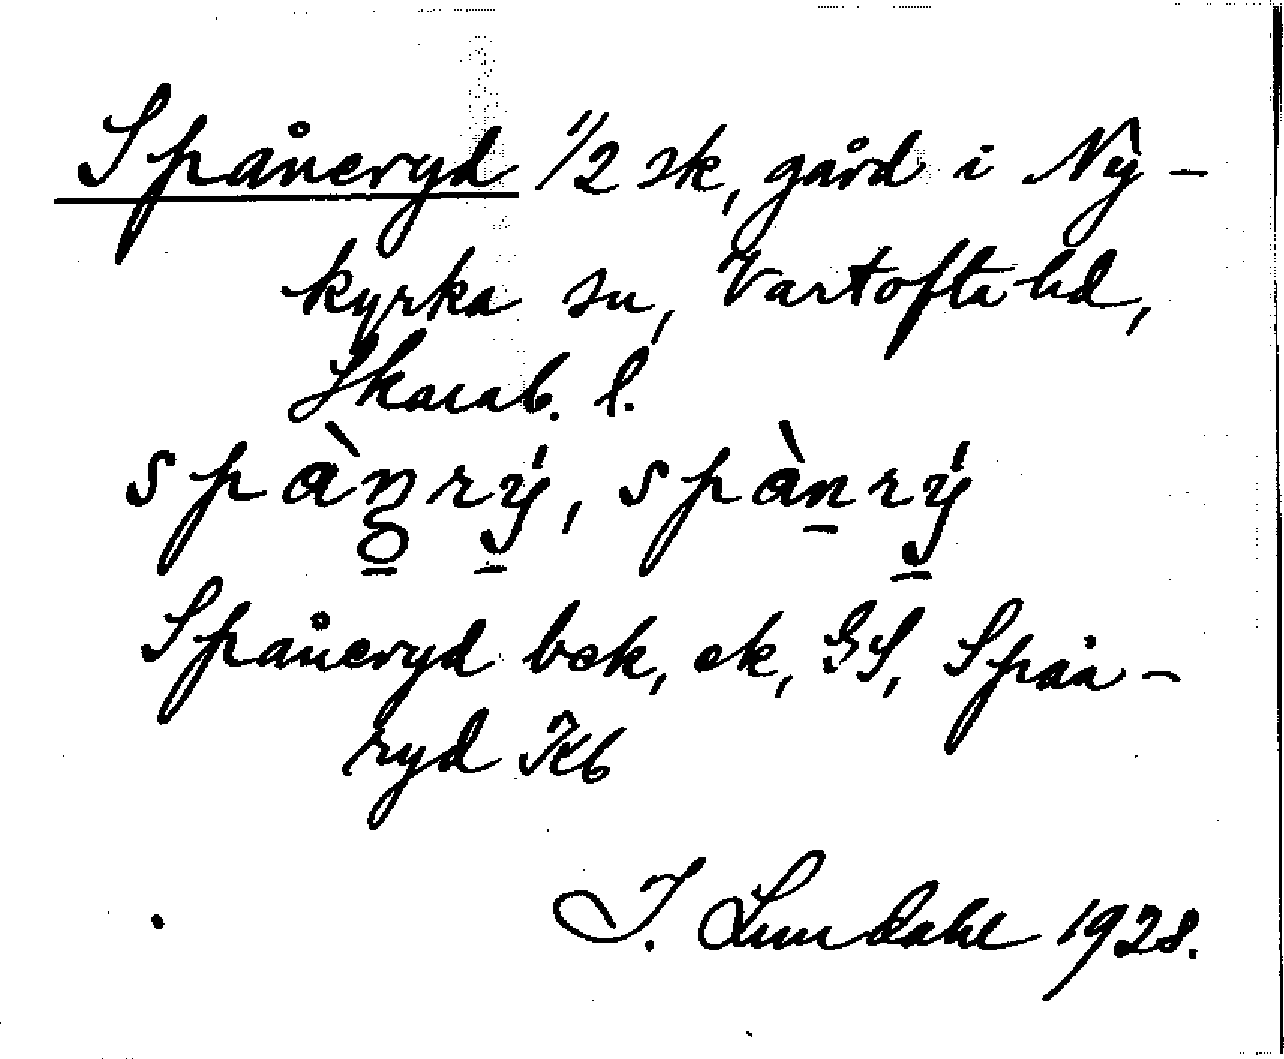 Spåneryd 1/2 sk, gård i Ny-
kyrka sn, Vartofta hd,
Skarab. l.
spànrý, spànrý
Spåneryd bek, ek, GS, Spån-
ryd Kb
I. Lundahl 1928.